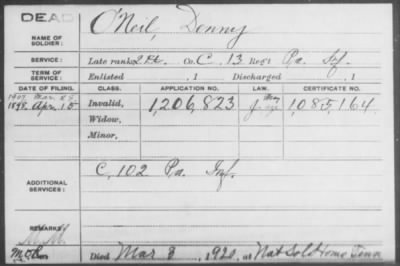 DEAD
O'Neil, Denny
NAME OF SOLDIER:
SERVICE: Late rank, 2 Lt. Co. C, 13 Reg't Pa. Inf.
TERM OF SERVICE: Enlisted , 1 Discharged , 1
DATE OF FILING. CLASS. APPLICATION NO. LAW. CERTIFICATE NO.
1898, Apr. 15 Invalid, 1,206,823 1,085,164
Widow,
Minor,
C, 102 Pa. Inf.
ADDITIONAL SERVICES:
REMARKS:
Died Mar 3, 1920, at Nat Sold Home Tenn